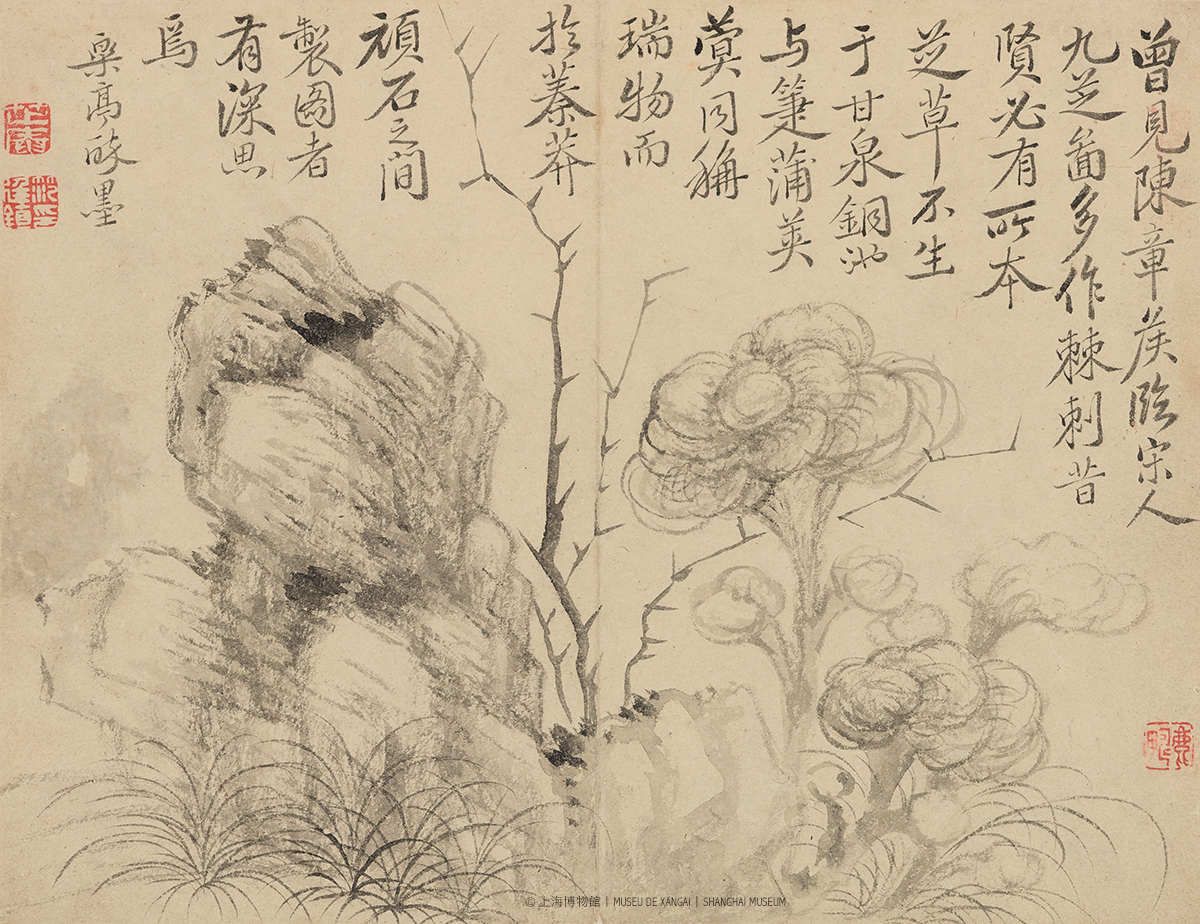 曾見陳章侯臨宋人
九芝圖多作棘刺昔
賢必有所本
芝草不生
于甘泉銅池
与箑蒲莢
蓂同稱
瑞物而
於蓁莽
頑石之間
製圖者
有深思
焉
亭墨
© 上海博物館 | MUSEU DE XANGAI | SHANGHAI MUSEUM